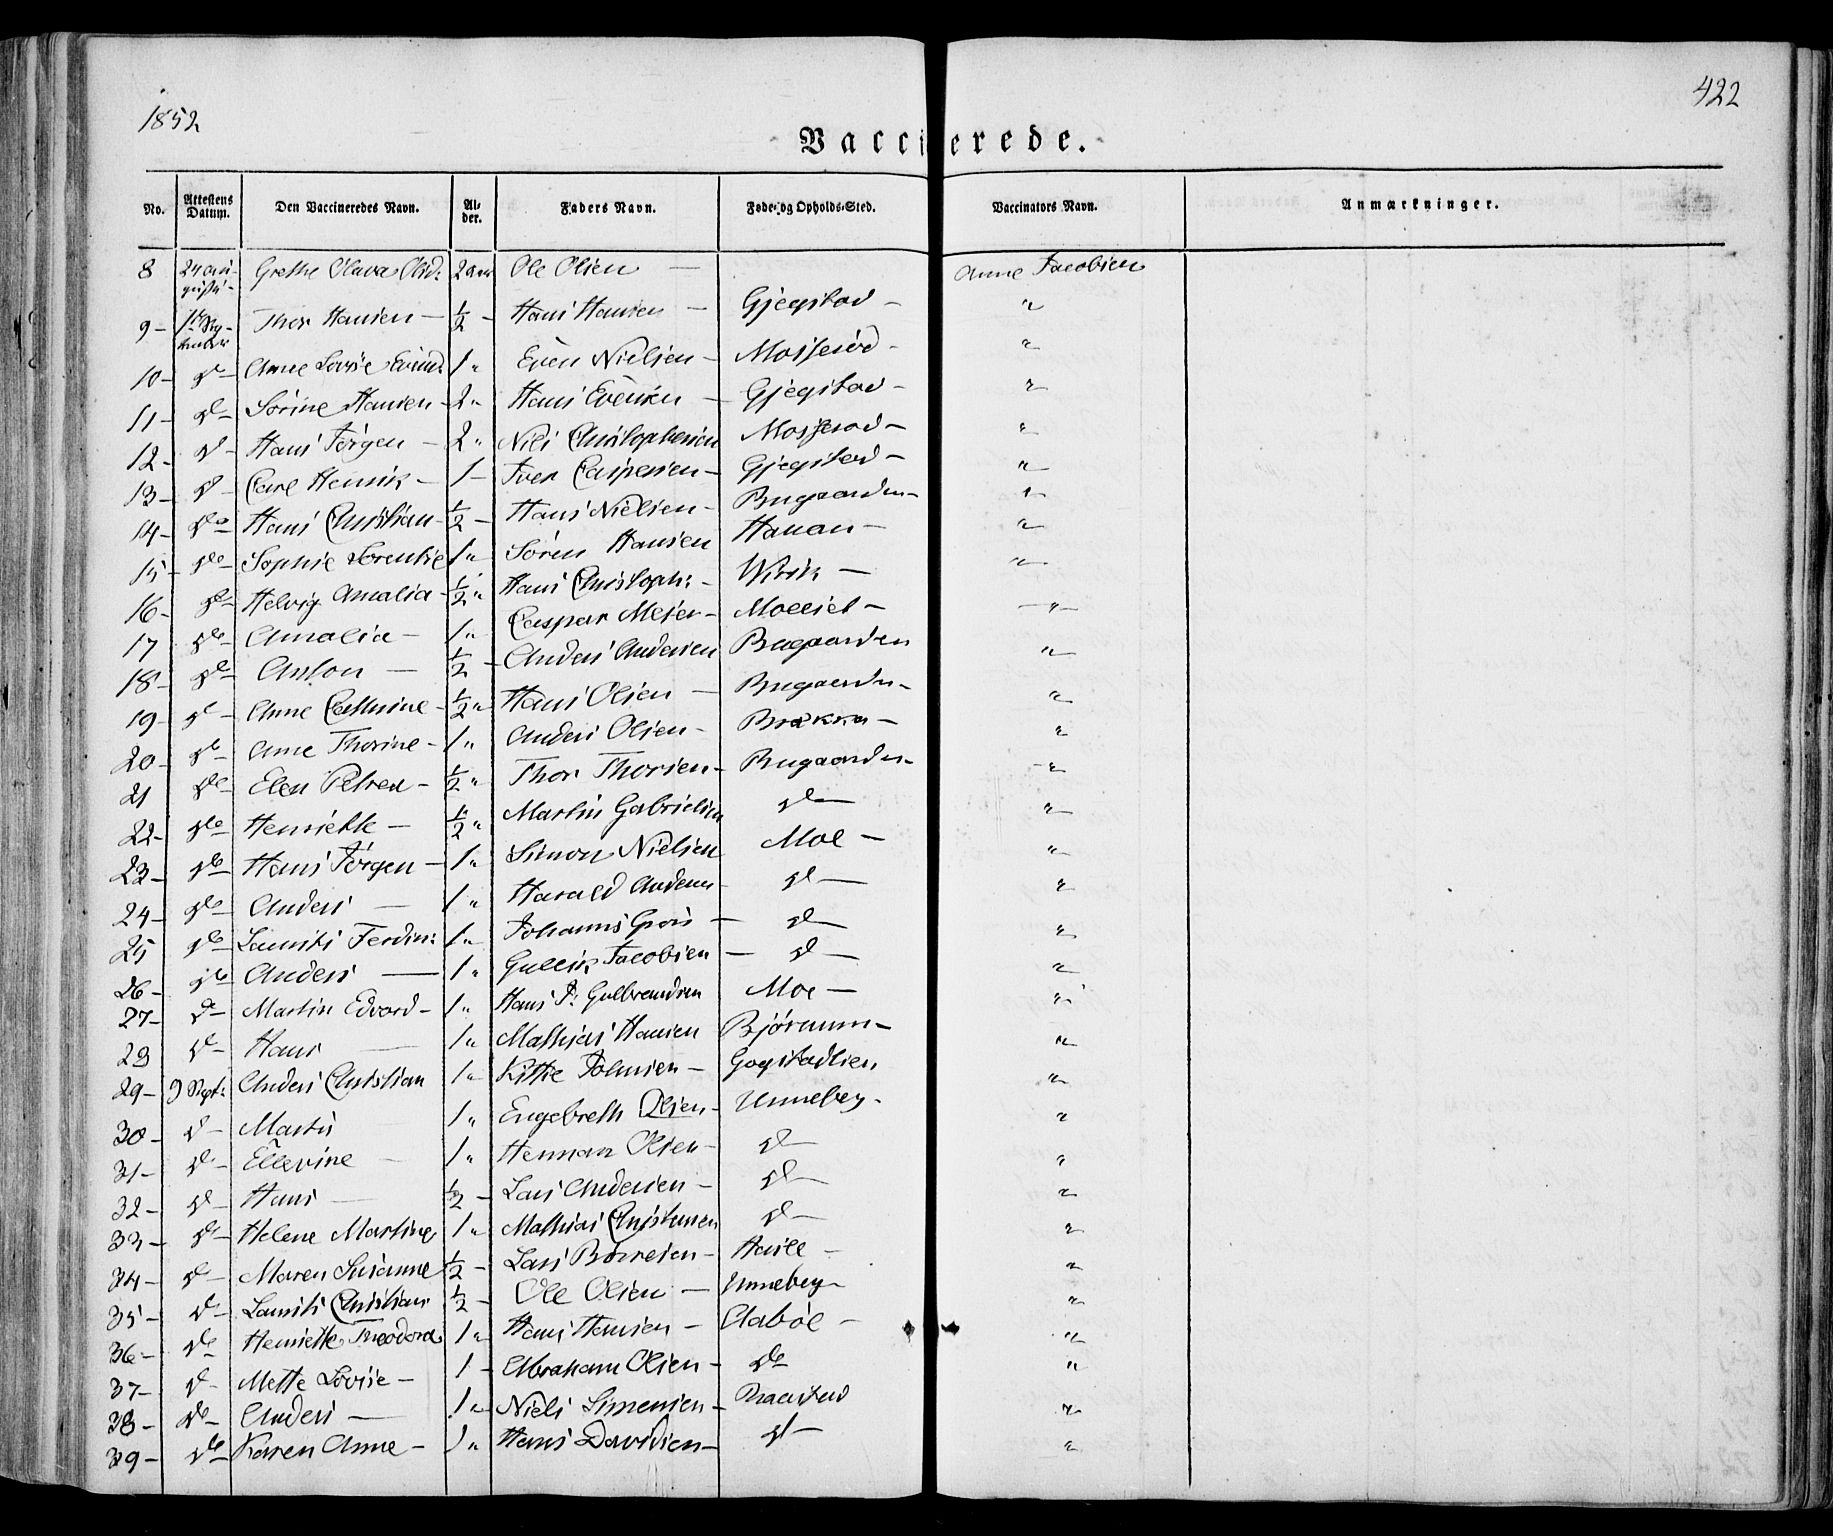 1852
422
Vaccinerede.
No. Attestens Datum. Den Vaccineredes Navn. Alder. Faders Navn. Føde- og Opholds-Sted. Vaccinators Navn. Anmærkninger.
8 Grethe Olava 2 Ole Olsen — Anne Jacobsen
9 - Thor Hansen — ½ - Hans Hansen — Gjegstad - "
10 - do - Anne Lovise 1 " Even Nielsen - Mosserød - "
11 - do - Sørine Hansen - 2 " Hans Evensen — Gjegstad - "
12 - do - Hans Jørgen - 2 " Niels Christophersen Mosserød - "
13 - do - Carl Henrik - 1 - Iver Caspersen - Gjegstad - "
14 - do - Hans Christian - ½ - Hans Nielsen - Bugaarden - "
15 - do - Sophie Lorentse 1 " Sören Hansen Hauan - "
16 - do - Helvig Amalia - ½ " Hans Christoph: - — "
17 do - Amalia - 1 " Caspar Meier - - "
18 - do - Anton — ½ - Anders Andersen Bugaarden "
19 - do - Anne Cathrine - ½ " Hans Olsen — Bugaarden - "
20 - do - Anne Thorine - 1 " Anders Olsen - "
21 do - Elen Petrea - ½ " Thor Thorsen - Bugaarden - "
22 - do - Henriette - ½ " Martin Gabrielsen do — "
23 - do - Hans Jørgen - 1 " Simon Nielsen Moe - "
24 - do - Anders — 1 " Harald Andersen do — "
25 do - Lauritz Ferdin: 1 " Johannes - do — "
26 - do - Anders — 1 " Gullik Jacobsen — do — "
27 - do - Martin Edvard - 1 " Hans J: Gulbrandsen Moe — "
28 do - Hans — 1 " Mathias Hansen Bjørnum - "
29 - 9 Sept: Anders Christian 1 " Kittie Johnsen - Gogstadlien "
30 - do - Martin 1 " Engebreth Olsen - Unneberg - "
31 - do - Ellevine — 1 " Herman Olsen - do — "
32 - do - Hans — ½ - Lars Andersen - do — "
33 - do - Helene Martine 1 " Mathias Christensen do — "
34 - do - Maren Susanne ½ - Lars Børresen - - "
35 - do - Lauritz Christian ½ - Ole Olsen — Unneberg - "
36 - do Henriette Theodora 1 " Hans Hansen - Clabøe - "
37 - do - Mette Lovise - 1 - Abraham Olsen - do "
38 - do - Anders — 1 " Niels Simensen - Raastad "
39 - do Karen Anne - 1 " Hans Davidsen - do — "